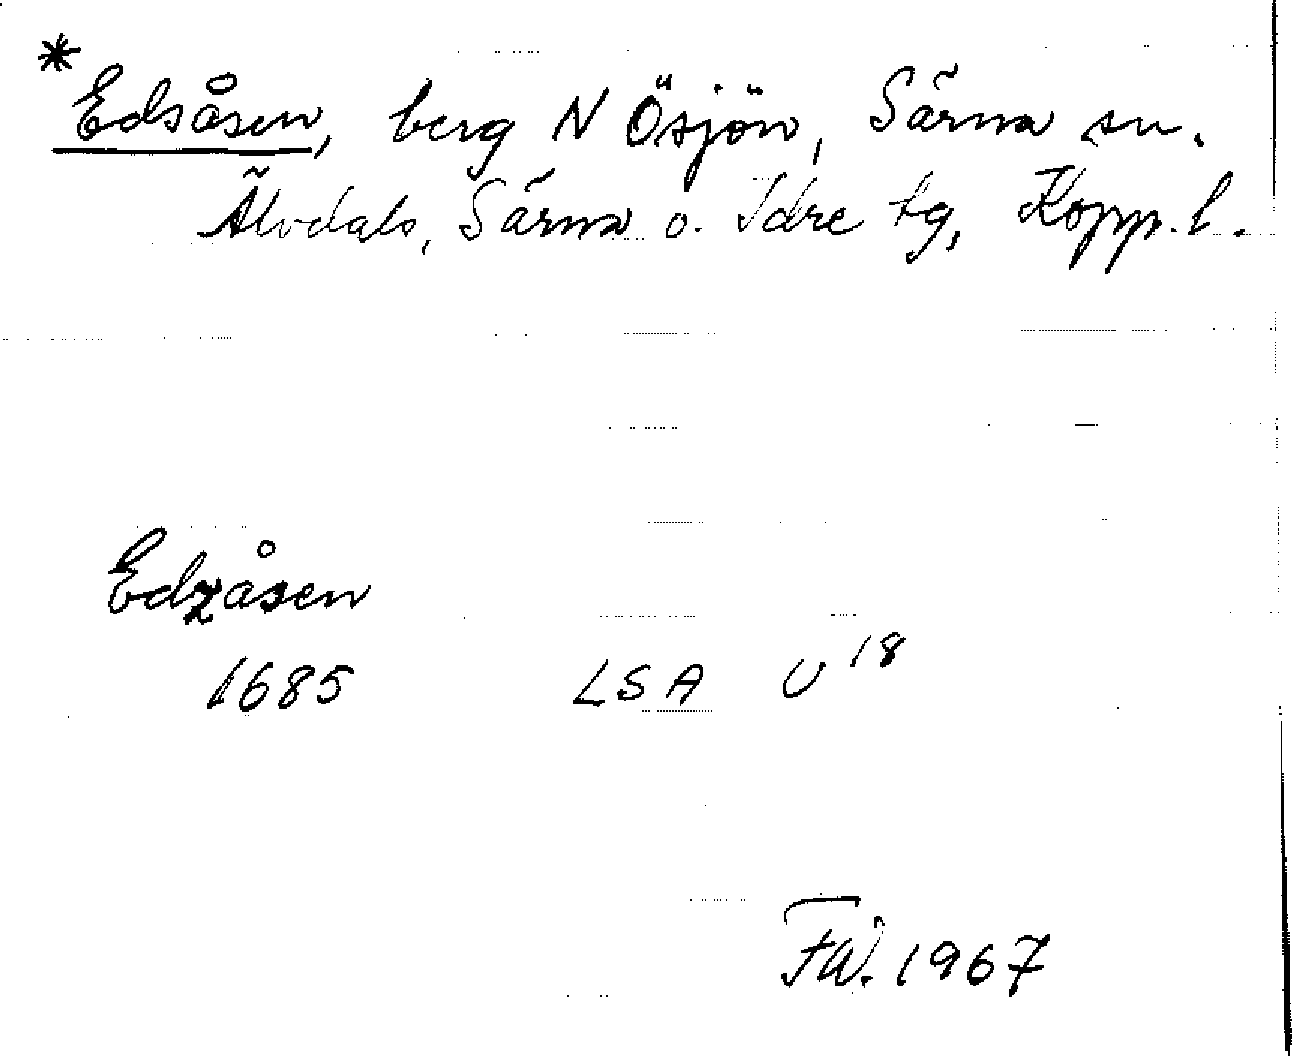 * Edsåsen, berg N Ösjön, Särna sn.
Älvdals, Särna o. Idre tg, Kopp. l.
Edzåsen
1685 LSA U 18
1967